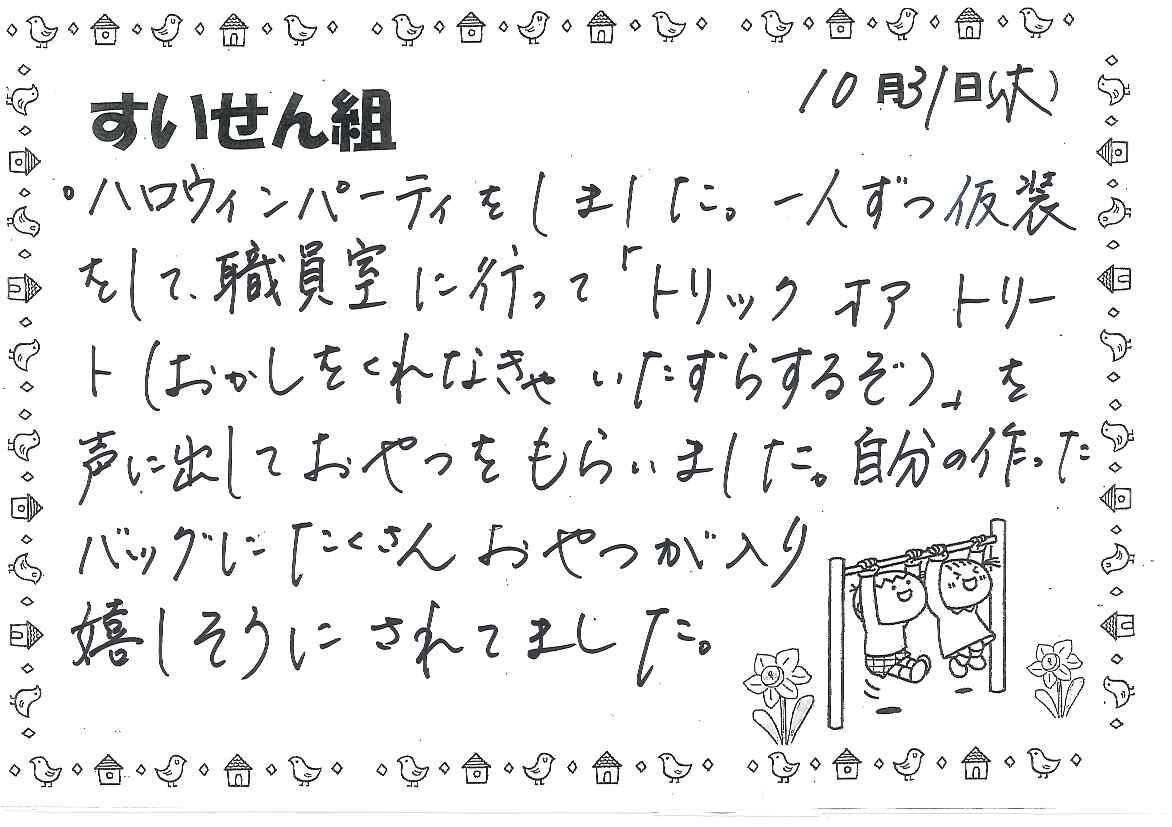 10月31日(木)
すいせん組
。ハロウィンパーティをしました。一人ずつ仮装
をして、職員室に行って「トリック オア トリー
ト(おかしをくれなきゃ いたずらするぞ)」を
声に出しておやつをもらいました。自分の作った
バッグにたくさん おやつが入り
嬉しそうにされてました。